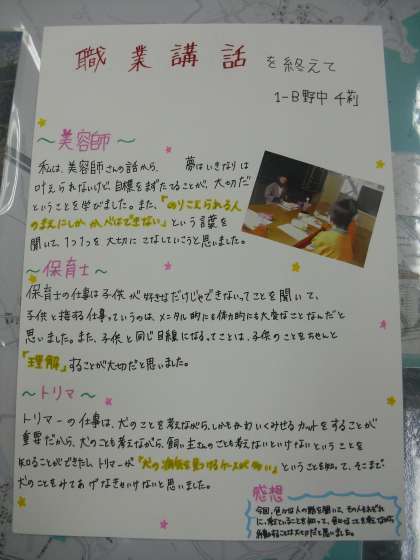 職業講話を終えて
1-B 野中 千莉
～美容師～
私は、美容師さんの話から、夢はいきなりは
叶えられないけど、目標をまずたてることが、大切だ
ということを学びました。また、「のりこえられる人
のまえにしかかべはできない」という言葉を
聞いて、1つ1つを大切にこなしていこうと思いました。
～保育士～
保育士の仕事は子供が好きなだけじゃできないってことを聞いて、
子供と接する仕事っていうのは、メンタル的にも体力的にも大変なことなんだと
思いました。また、子供と同じ目線になるってことは、子供のことをちゃんと
「理解」することが大切だと思いました。
～トリマー～
トリマーの仕事は、犬のことを考えながら、しかもかわいくみせるカットをすることが
重要だから、犬のことも考えながら、飼い主さんのことも考えないといけないということを
知ることができたし、トリマーが「犬の病気を見つけるケースが多い」ということを知って、そこまで
犬のことをみてあげなきゃいけないと思いました。
感想
今回、色々な人の話を聞いて、その人それぞれ